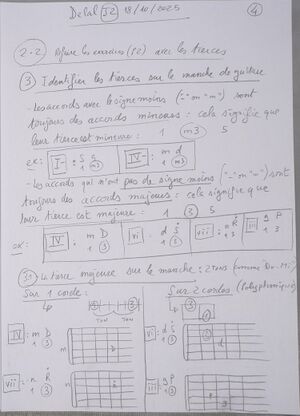 Delal J2 18/10/2025 4
2-2 Refaire les exercices (J2) avec les tierces
3 Identifier les tierces sur le manche de guitare
- Les accords avec le signe moins ("-" ou "m") sont
toujours des accords mineurs : cela signifie que
leur tierce est mineure : 1 m3 5
ex: I- : S 1 m3 IV- : m d 1 m3
- Les accords qui n'ont pas de signe moins ("-" ou "m") sont
toujours des accords majeurs : cela signifie que
leur tierce est majeure : 1 3 5
ex: IV : m D 1 3 vi : d S 1 3 viii : n R 1 3 iii : g P 1 3
31 La tierce majeure sur le manche : 2 tons (comme Do-Mi)
Sur 1 corde : Sur 2 cordes (Polyphonique)
1 3 3
TON TON 1
IV : m D 1 3 m D vi : d S 1 3 d
vii : n R 1 3 n iii : g P 1 3 P g